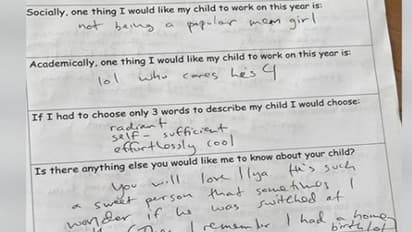 Socially, one thing I would like my child to work on this year is:
not being a popular mean girl
Academically, one thing I would like my child to work on this year is:
lol who cares he's 4
If I had to choose only 3 words to describe my child I would choose:
radiant
self-sufficient
effortlessly cool
Is there anything else you would like me to know about your child?
You will love Ilya He's such
a sweet person that sometimes I
wonder if he was switched at
I remember I had a home
birth lol